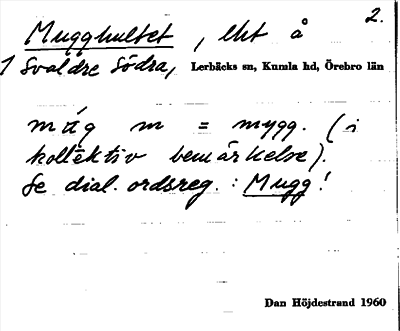 2.
Mugghultet, lht å
1 Svaldre Södra, Lerbäcks sn, Kumla hd, Örebro län
múg m = mygg. (i
kollektiv bemärkelse).
Se dial. ordsreg.: Mugg!
Dan Höjdestrand 1960